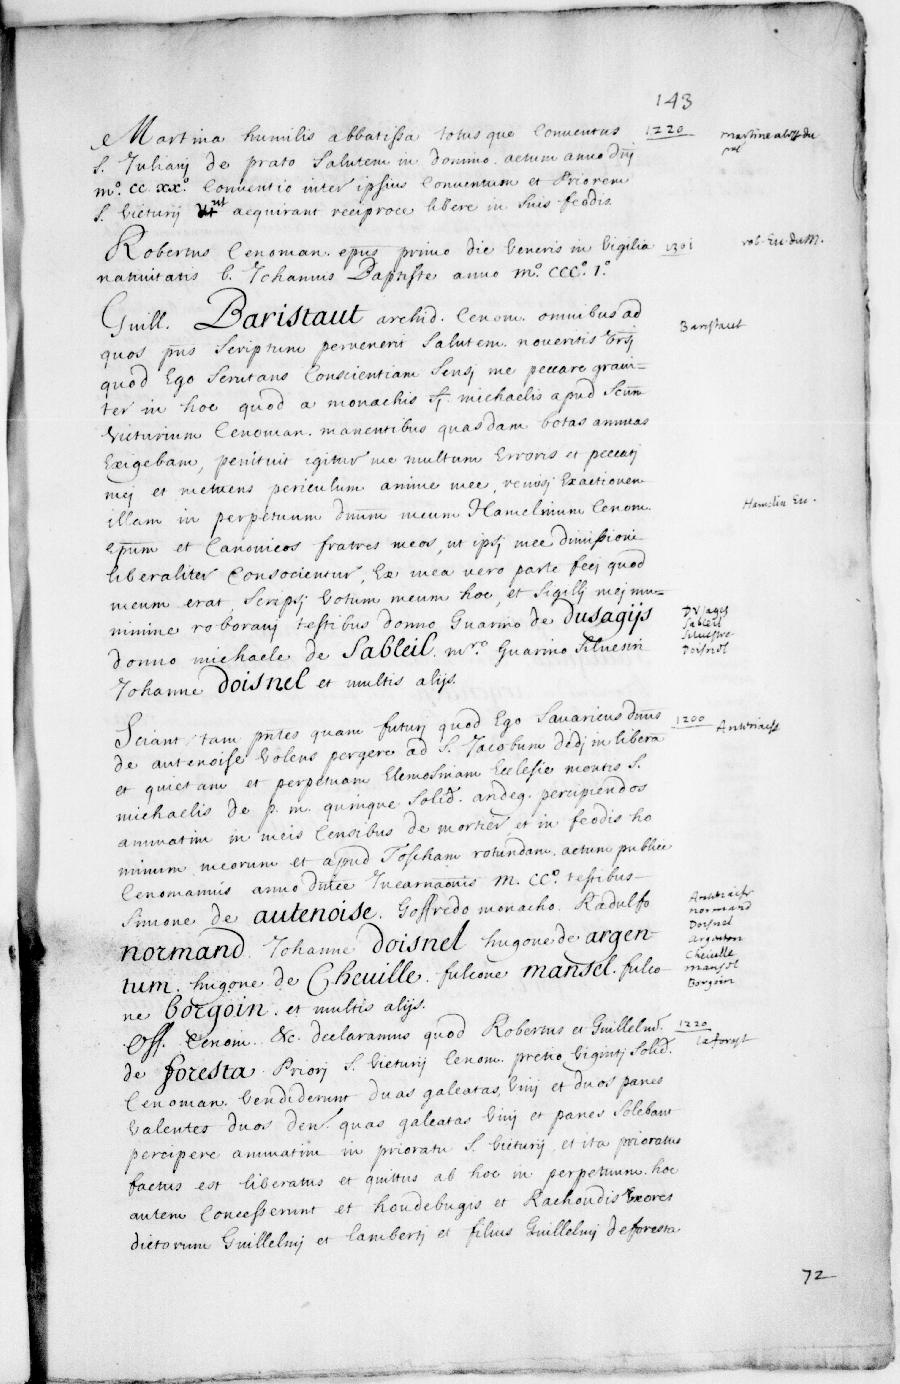 143
Martina humilis abbatissa totus que Conventus 1220 martine abbsse du pré
S. Julianj de prato Salutem in domino. actum anno dnj
m.° cc xx.° Conventio inter ipsius Conventum et Priorem
S. Victurij ut acquirant reciproce libere in suis feodis
Robertus Cenoman. epus primo die Veneris in Vigilia 1301 rob. Eu. du M.
nativitatis b. Johannis Baptiste anno m.° ccc.° 1.°
Guill. Baristaut archid. Cenom. omnibus ad
quos pns Scriptum pervenerit Salutem. noveritis Baristaut
quod Ego Scrutans Conscientiam Sensj me peccare gravi=
ter in hoc quod a monachis Sti. michaelis apud Scum
Victurium Cenoman. manentibus quasdam botas annuas
Exigebam, penituit igitur me multum Erroris et peccatj
mej et metuens periculum anime mee, remisj Exactionem
illam in perpetuum dnum meum Hamelinum Cenom. Hamelin Eu.
Epum et Canonicos fratres meos, ut ipsj mee dimissioni
liberaliter Consocientur, Ex mea vero parte fecj quod
meum erat, Scripsj Votum meum hoc, et Sigillj mej mu=
nimine roboravj testibus donno Guarino de dusagijs Dusagis
donno michaele de Sableil. mro. Guarino Silvestri Sableil Silvestre
Johanne doisnel et multis alijs. Doisnel
Sciant tam pntes quam futurj quod Ego Savaricus dnus 1200 Antenaise
de autenoise Volens pergere ad S. Jacobum dedj in libera
et quietam et perpetuam Elemosinam Ecclesie montis S.
michaelis de p. m. quinque Solid. andeg. percipiendos
annuatim in meis Censibus de mortier et in feodis ho
minum meorum et apud Foscham rotundam. actum publice
Cenomannis anno dnice Incarnaonis m. cc.° testibus
Simone de autenoise. Goffredo monacho. Radulfo Antenaise
normand. Johanne doisnel hugone de argen normand Doisnel
tum. hugone de Cheuille. fulcone mansel. fulco argenton Cheuille mansel
ne borgoin. et multis alijs. Borgoin
Off. Cenom. &c. declaramus quod Robertus et Guillelmus. 1220
de foresta. Priorj S. Victurij Cenom. pretio Vigintj Solid. la forest
Cenoman. Vendiderunt duas galeatas Vinj et duos panes
Valentes duos den. quas galeatas Vinj et panes Solebant
percipere annuatim in prioratu S. Victurij, et ita prioratus
factus est liberatus et quittus ab hoc in perpetuum. hoc
autem Concesserunt et houdebugis et Rachoudis Uxores
dictorum Guillelmj et Lambertj et filius Guillelmj de foresta
72